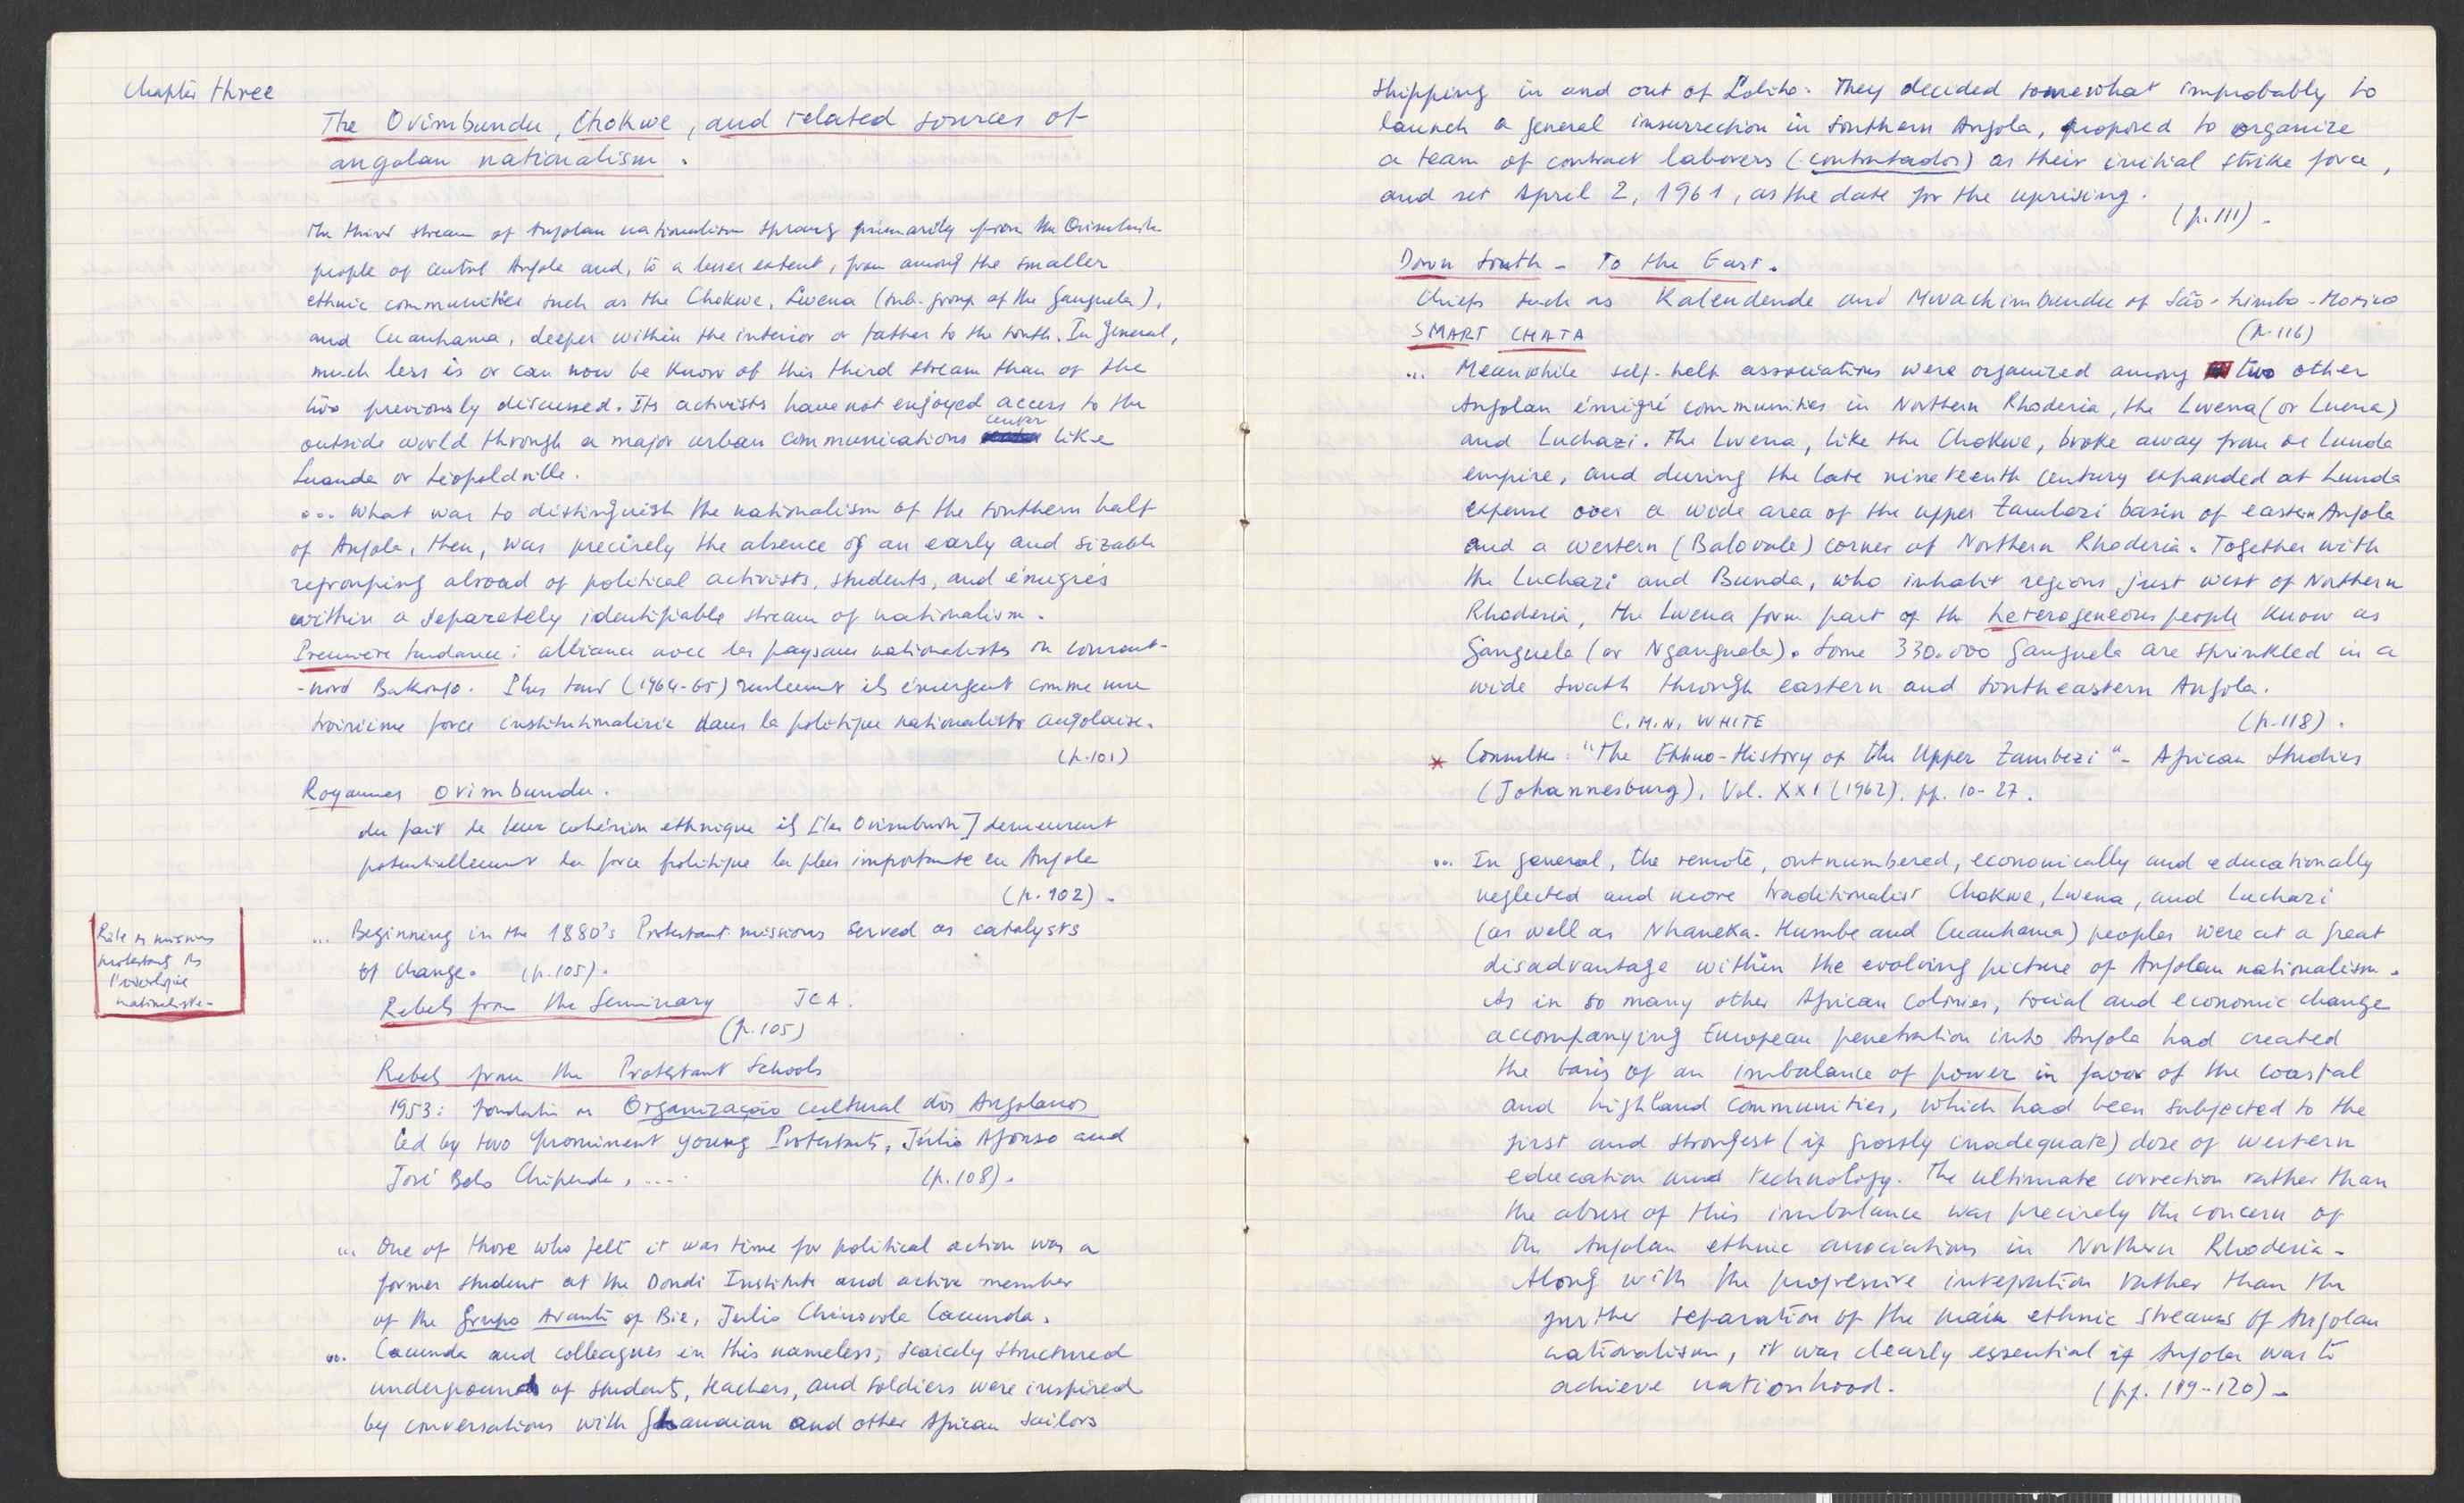 Chapter three
The Ovimbundu, Chokwe, and related sources of
angolan nationalism.
The third stream of Angolan nationalism sprang primarily from the Ovimbundu
people of central Angola and, to a lesser extent, from among the smaller
ethnic communities such as the Chokwe, Lwena (sub-group of the Ganguela),
and Cuanhama, deeper within the interior or father to the south. In general,
much less is or can now be know of this third stream than of the
two previously discussed. Its activists have not enjoyed access to the
outside world through a major urban communications center like
Luanda or Léopoldville.
... What was to distinguish the nationalism of the southern half
of Angola, then, was precisely the absence of an early and sizable
regrouping abroad of political activists, students, and émigrés
within a separately identifiable stream of nationalism.
Première tendance : alliance avec les paysans nationalistes ou courant-
-nord Bakongo. Plus tard (1964-65) seulement ils émergent comme une
troisième force institutionalisée dans la politique nationaliste angolaise.
(p.101)
Royaumes Ovimbundu.
du fait de leur cohésion ethnique ils [les Ovimbundu] demeurent
potentiellement la force politique la plus importante en Angola
(p.102).
Rôle des missions
protestantes ds
l'idéologie
nationaliste.
... Beginning in the 1880's Protestant missions served as catalysts
of change. (p.105).
Rebels from the Seminary JCA.
(p.105)
Rebels from the Protestant Schools
1953: fondation Organização cultural dos Angolanos
led by two prominent young Protestants, Júlio Afonso and
José Belo Chipenda, .... (p.108).
... One of those who felt it was time for political action was a
former student at the Dondi Institute and active member
of the Grupo Avante of Bie, Julio Chinovola Cacunda.
... Cacunda and colleagues in this nameless, scarcely structured
underground of students, teachers, and soldiers were inspired
by conversations with Ghanaian and other African sailors
shipping in and out of Lobito. They decided somewhat improbably to
launch a general insurrection in southern Angola, proposed to organize
a team of contract laborers (contratados) as their initial strike force,
and set April 2, 1961, as the date for the uprising.
(p.111).
Down South - To the East.
Chiefs such as Kalendende and Mwachimbundu of São-Limbo-Moxico
SMART CHATA (p.116)
... Meanwhile self-help associations were organized among two other
Angolan émigré communities in Northern Rhodesia, the Lwena (or Luena)
and Luchazi. The Lwena, like the Chokwe, broke away from de Lunda
empire, and during the late nineteenth century expanded at Lunda
expense over a wide area of the upper Zambezi basin of eastern Angola
and a western (Balovale) corner of Northern Rhodesia. Together with
the Luchazi and Bunda, who inhabit regions just west of Northern
Rhodesia, the Lwena form part of the heterogeneous people know as
Ganguela (or Nganguela). Some 330.000 Ganguela are sprinkled in a
wide swath through eastern and southeastern Angola.
C.M.N. WHITE (p.118).
* Consulter: "The Ethno-History of the Upper Zambezi" - African Studies
(Johannesburg), Vol. XXI (1962). pp. 10-27.
... In general, the remote, outnumbered, economically and educationally
neglected and more traditionalist Chokwe, Lwena, and Luchazi
(as well as Nhaneka-Humbe and Cuanhama) peoples were at a great
disadvantage within the evolving picture of Angolan nationalism.
As in so many other African colonies, social and economic change
accompanying European penetration into Angola had created
the basis of an imbalance of power in favor of the coastal
and highland communities, which had been subjected to the
first and strongest (if grossly inadequate) dose of western
education and technology. The ultimate correction rather than
the abuse of this imbalance was precisely the concern of
the Angolan ethnic associations in Northern Rhodesia.
Along with the progressive integration rather than the
further separation of the main ethnic streams of Angolan
nationalism, it was clearly essential if Angola was to
achieve nationhood. (pp. 119-120).